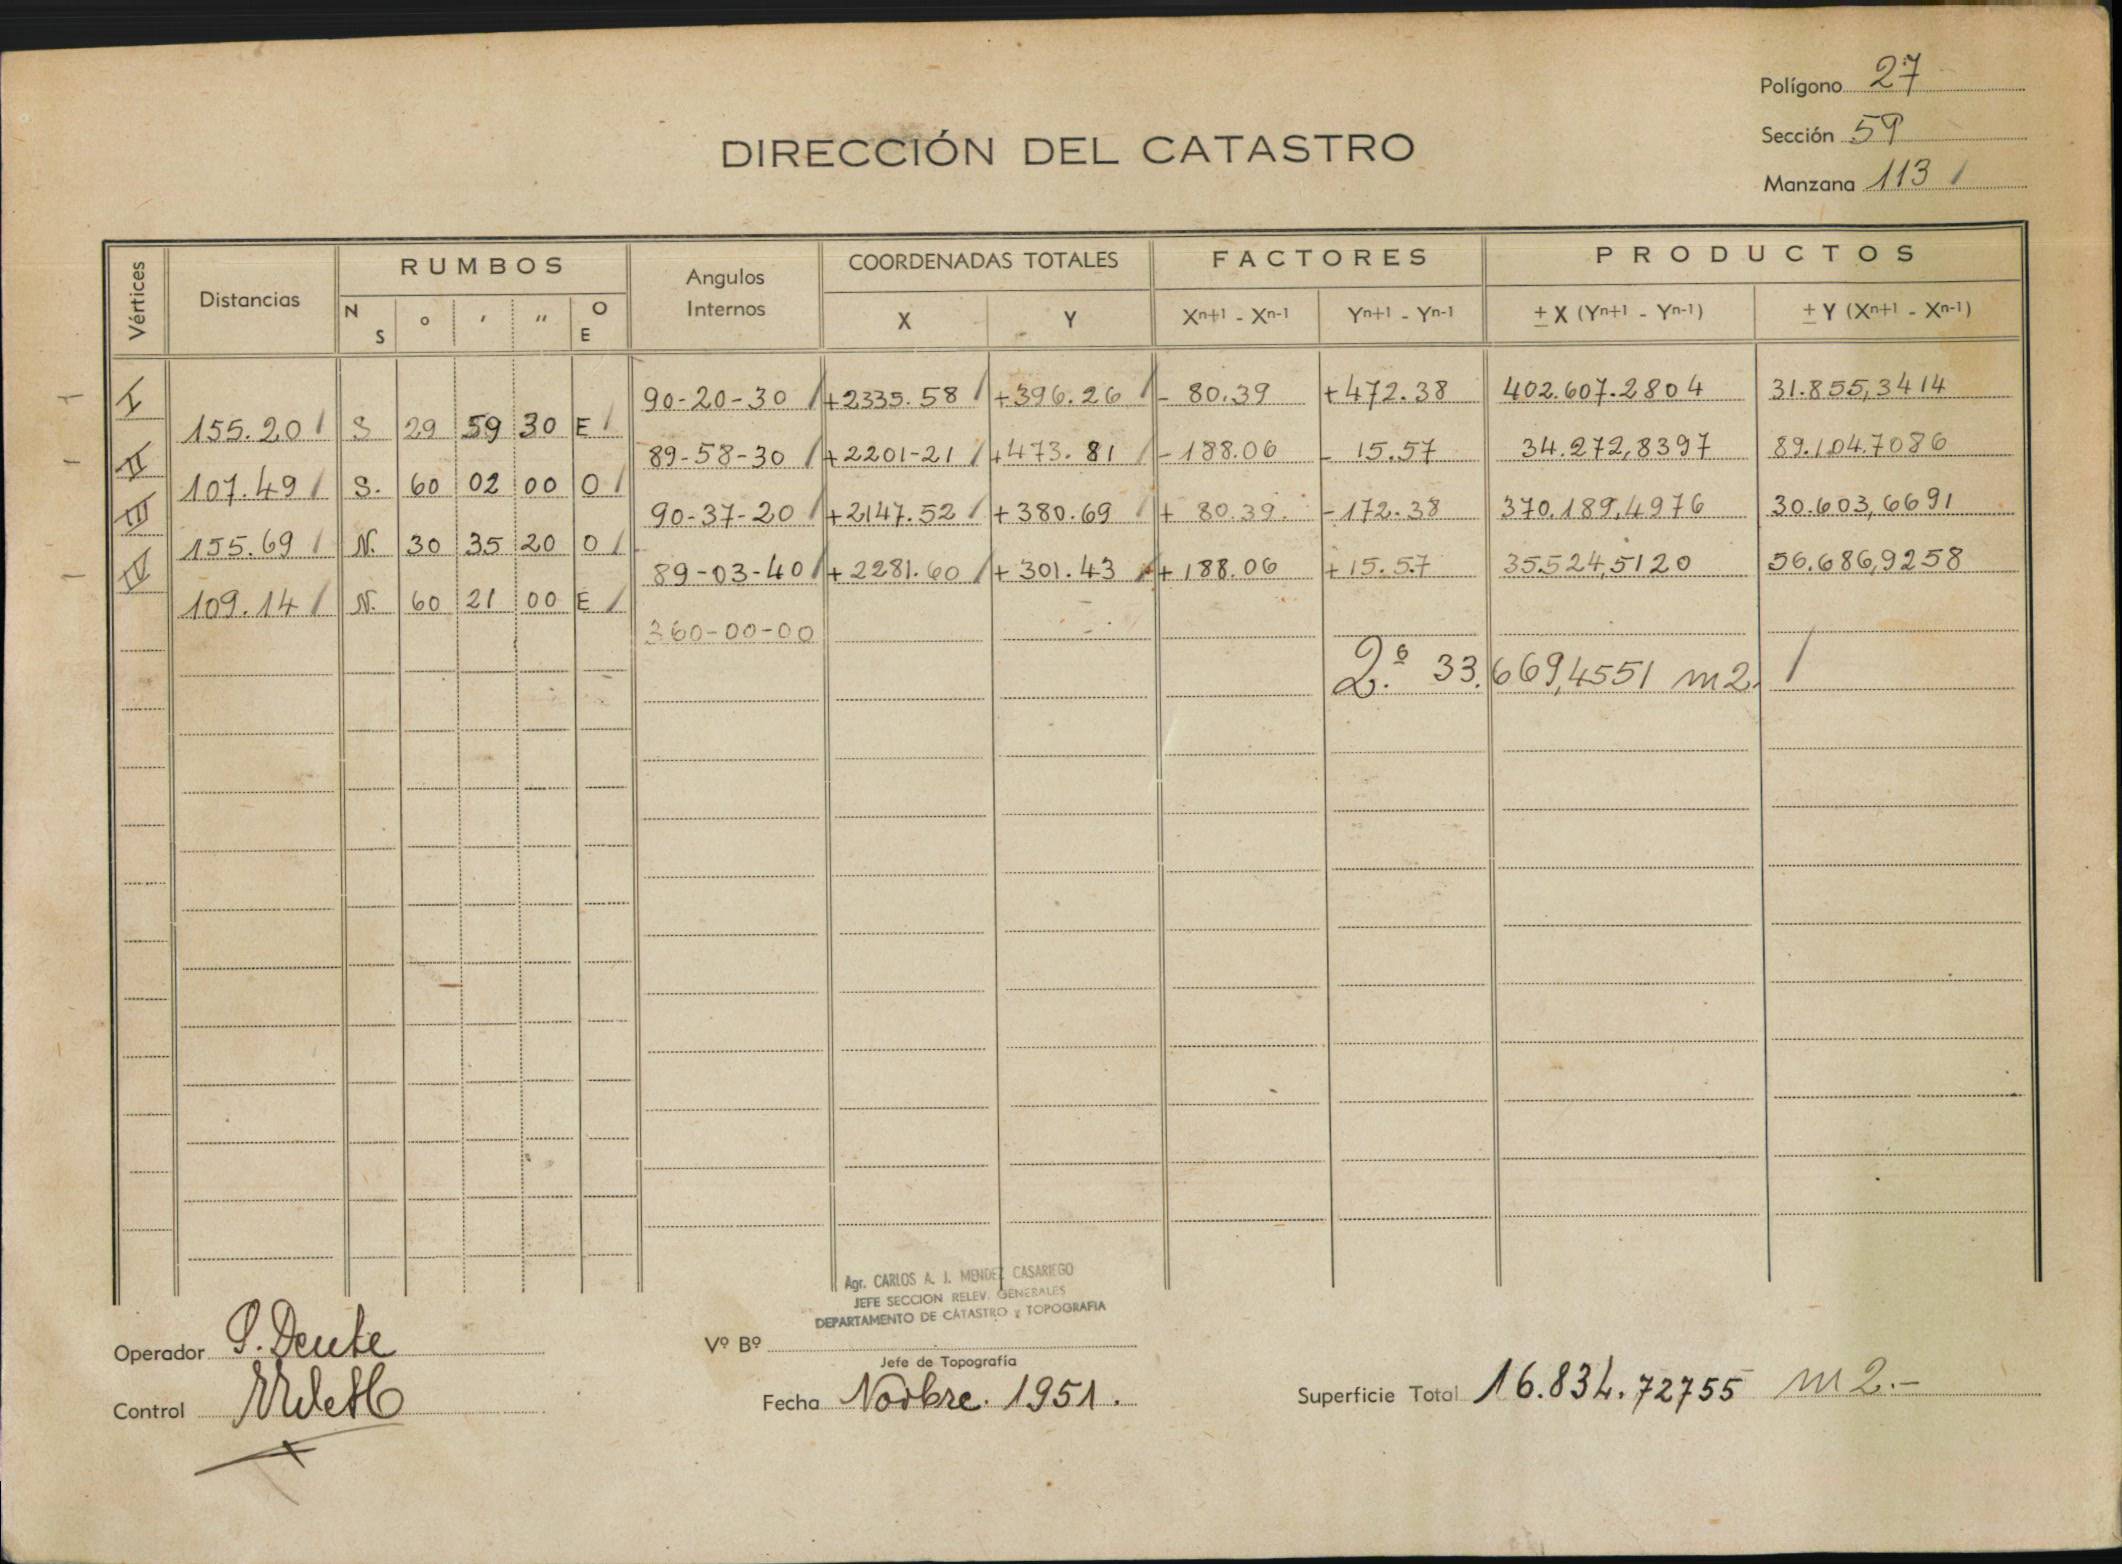 Polígono 27
Sección 59
Manzana 113
DIRECCIÓN DEL CATASTRO
Vértices Distancias RUMBOS Angulos Internos COORDENADAS TOTALES FACTORES PRODUCTOS
N S ° ′ ″ O E X Y Xn+1 - Xn-1 Yn+1 - Yn-1 ± X (Yn+1 - Yn-1) ± Y (Xn+1 - Xn-1)
I 90-20-30 +2335.58 +396.26 - 80.39 +172.38 402.607.2804 31.855,3414
155.20 S 29 59 30 E
II 89-58-30 +2201-21 +473.81 -188.06 - 15.57 34.272,8397 89.104.7086
107.49 S. 60 02 00 O
III 90-37-20 +2147.52 +380.69 + 80.39. -172.38 370.189,4976 30.603,6691
155.69 N. 30 35 20 O
IV 89-03-40 +2281.60 +301.43 +188.06 +15.57 35524,5120 56.686,9258
109.14 N. 60 21 00 E
360-00-00
2.º 33.669,4551 m2.
Agr. CARLOS A. J. MENDEZ CASARIEGO
JEFE SECCION RELEV. GENERALES
DEPARTAMENTO DE CATASTRO y TOPOGRAFIA
Operador
Vº Bº
Jefe de Topografía
Control
Fecha Novbre. 1951.
Superficie Total 16.834.72755 m2.-